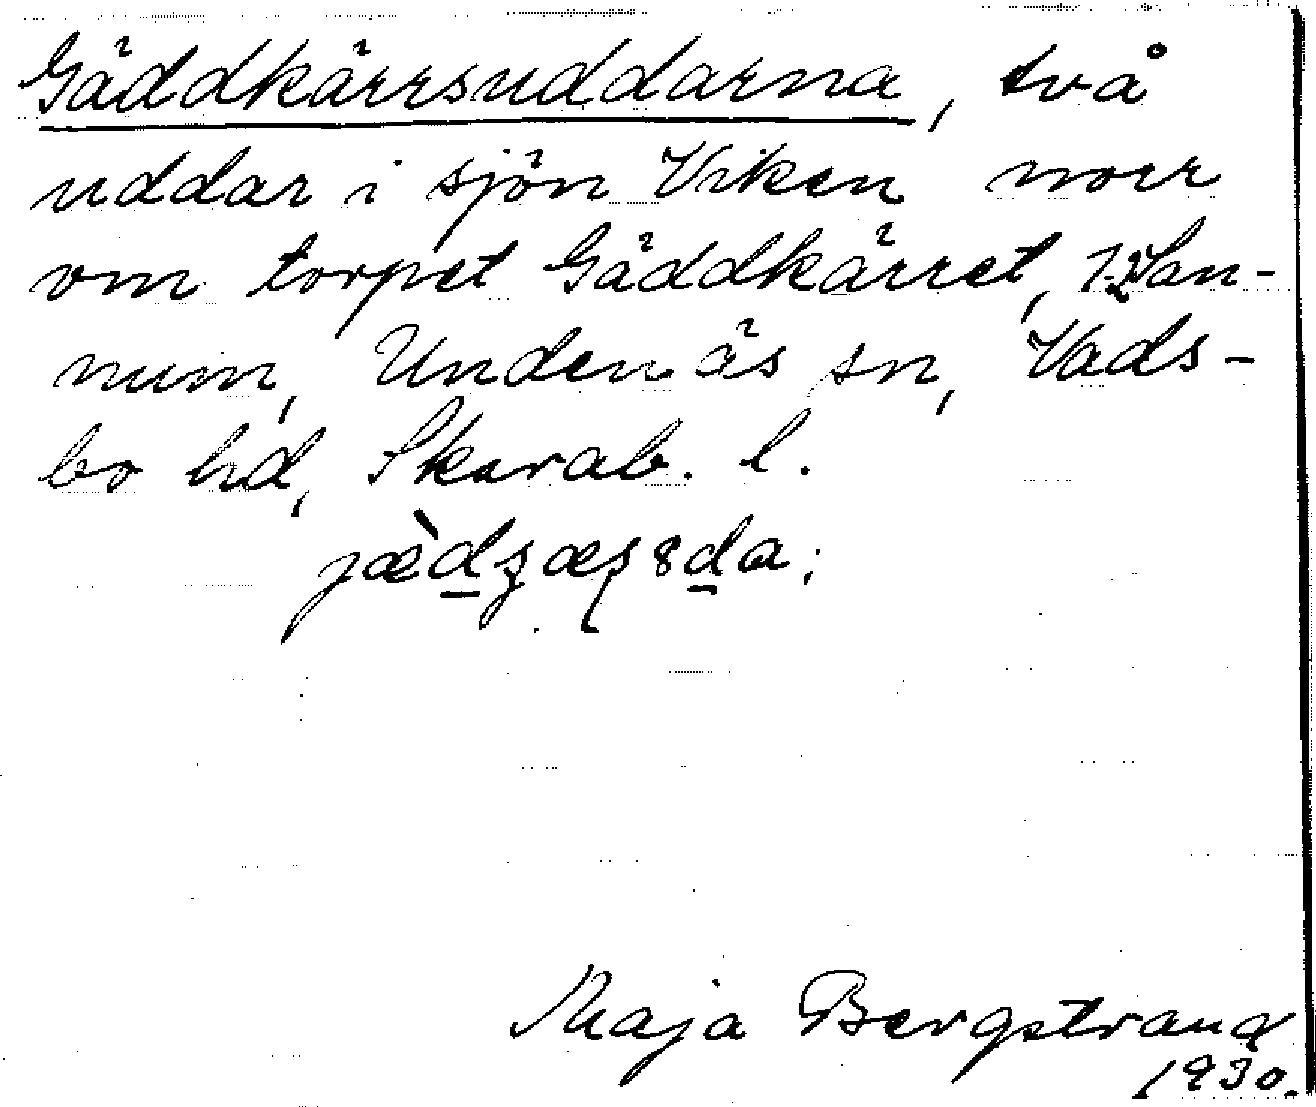 Gäddkärrsuddarna, två
uddar i sjön Viken norr
om torpet Gäddkärret, San-
num, Undenäs sn, Vads-
bo hd, Skarab. l.
Maja Bergstrand
1930.